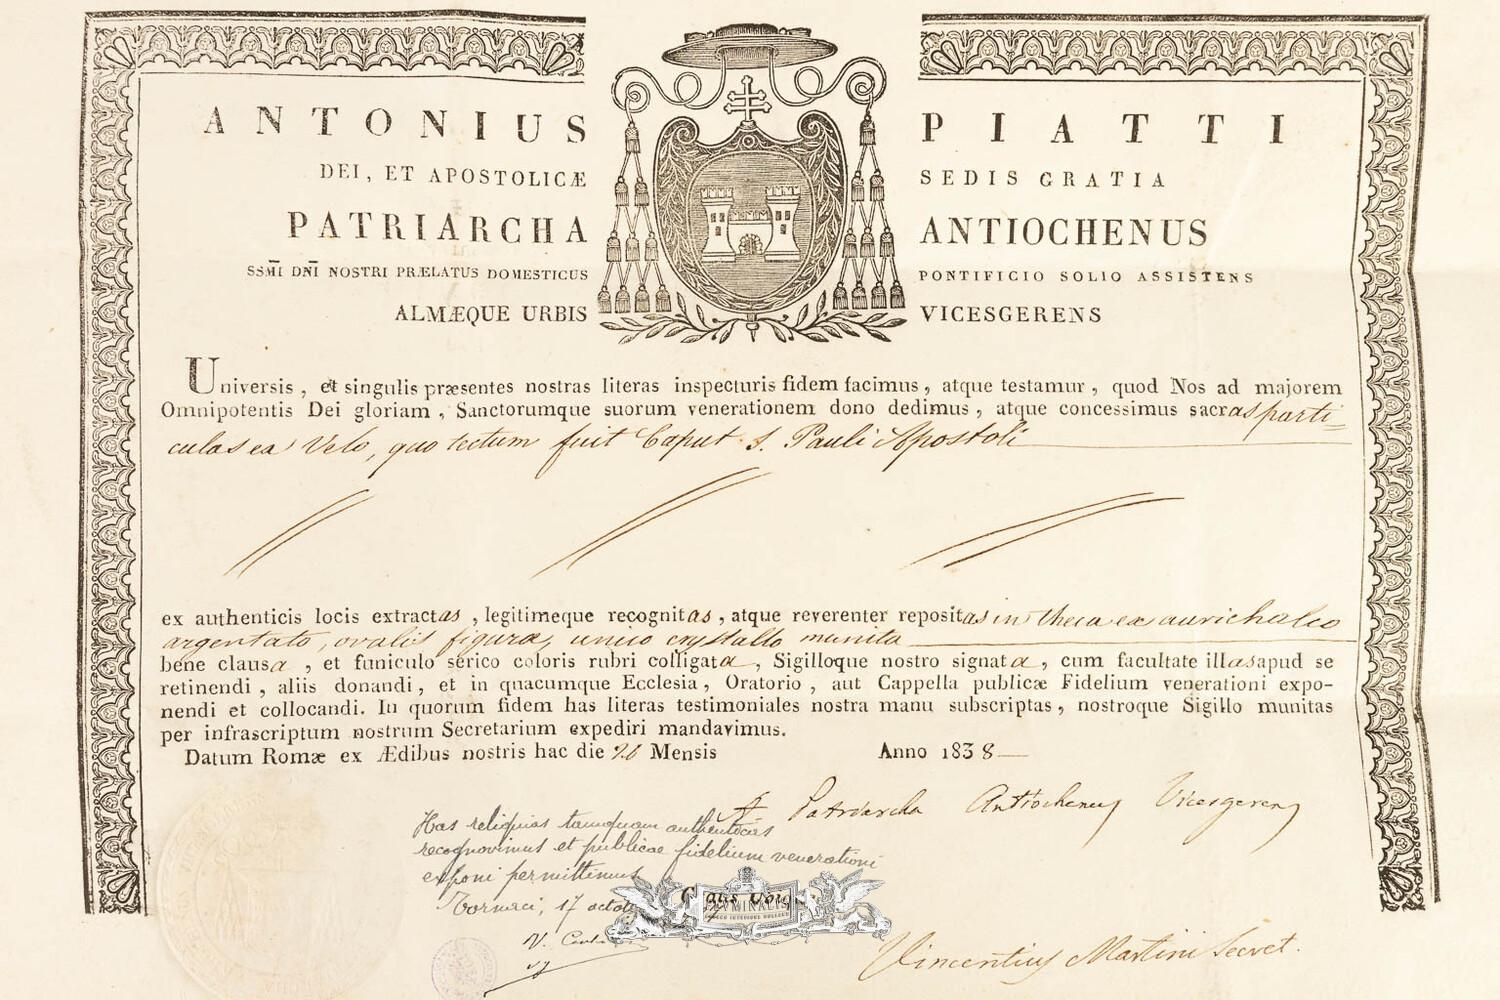 ANTONIUS PIATTI
DEI, ET APOSTOLICÆ SEDIS GRATIA
PATRIARCHA ANTIOCHENUS
SSM̄I DN̄I NOSTRI PRÆLATUS DOMESTICUS PONTIFICIO SOLIO ASSISTENS
ALMÆQUE URBIS VICESGERENS
Universis, et singulis præsentes nostras literas inspecturis fidem facimus, atque testamur, quod Nos ad majorem
Omnipotentis Dei gloriam, Sanctorumque suorum venerationem dono dedimus, atque concessimus sacras parti=
culas ex Velo, quo tectum fuit Caput S. Pauli Apostoli
ex authenticis locis extractas, legitimeque recognitas, atque reverenter repositas in theca ex aurichalco
argentato, ovalis figuræ, unico crystallo munita
bene clausa, et funiculo serico coloris rubri colligata, Sigilloque nostro signata, cum facultate illas apud se
retinendi, aliis donandi, et in quacumque Ecclesia, Oratorio, aut Cappella publicæ Fidelium venerationi expo-
nendi et collocandi. In quorum fidem has literas testimoniales nostra manu subscriptas, nostroque Sigillo munitas
per infrascriptum nostrum Secretarium expediri mandavimus.
Datum Romæ ex Ædibus nostris hac die 26 Mensis Anno 1838
A. Patriarcha Antiochenus Vicesgerens
Has reliquias tamquam authenticas
recognovimus et publicae fidelium venerationi
exponi permittimus
Tornaci, 17
Gratis
Vincentius Martini Secret.